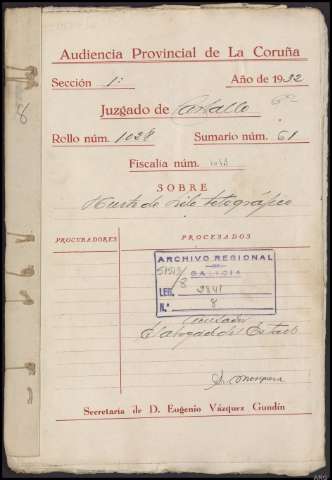 Audiencia Provincial de La Coruña
Sección 1ª Año de 1932
Juzgado de Carballo
Rollo núm. 1.028 Sumario núm. 61
Fiscalía núm.
SOBRE
Hurto de hilo telegráfico
8
PROCURADORES PROCESADOS
ARCHIVO REGIONAL
DE
GALICIA
/8
LEG. 2841
N.º 8
El abogado del Estado
Secretaría de D. Eugenio Vázquez Gundín